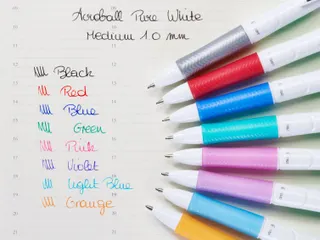 Acroball Pure White
Medium 1.0 mm
Black
Red
Blue
Green
Pink
Violet
Light Blue
Orange